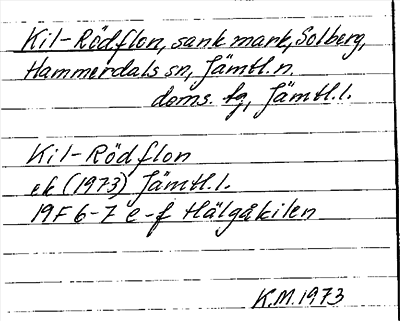 Kil-Rödflon, sank mark, Solberg,
Hammerdals sn, Jämtl.n.
doms. tg, Jämtl.l.
Kil-Rödflon
ek (1973) Jämtl.l.
19F 6-7 e-f Hälgåkilen
K.M.1973